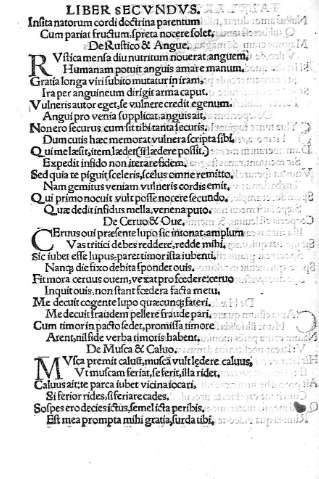 LIBER SECVNDVS.
Insita natorum cordi doctrina parentum
Cum pariat fructum, spreta nocere solet.
De Rustico & Angue.
RVstica mensa diu nutritum nouerat anguem,
Humanam potuit anguis amare manum.
Gratia longa viri subito mutatur in iram,
Ira per anguineum dirigit arma caput.
Vulneris autor eget, se vulnere credit egenum.
Angui pro venia supplicat, anguis ait,
Non ero securus, cum sit tibi tanta securis,
Dum cutis hæc memorat vulnera scripta sibi,
Qui me læsit, item lædet (si lædere possit)
Expedit infido non iterare fidem,
Sed quia te piguit sceleris, scelus omne remitto,
Nam gemitus veniam vulneris cordis emit,
Qui primo nocuit vult posse nocere secundo.
Quæ dedit infidus mella, venena puto.
De Ceruo & Oue.
CEruus oui præsente lupo sic intonat: amplum
Vas tritici debes reddere, redde mihi,
Sic iubet esse lupus, paret timor ista iubenti,
Nancq die fixo debita spondet ouis.
Fit mora ceruus ouem, vexat pro fœdere: ceruo
Inquit ouis, non stant fœdera facta metu,
Me decuit cogente lupo quæcuncq fateri,
Me decuit fraudem pellere fraude pari,
Cum timor in pacto sedet, promissa timore
Arent, nil fidei verba timoris habent.
De Musca & Caluo.
MVsca premit calui, musca vult lædere caluus,
Vt muscam feriat, se ferit, illa ridet,
Caluus ait: te parca iubet vicina iocari,
Si ferior rides, si feriare cades,
Sospes ero decies ictus, semel icta peribis,
Est mea prompta mihi gratia, surda tibi,